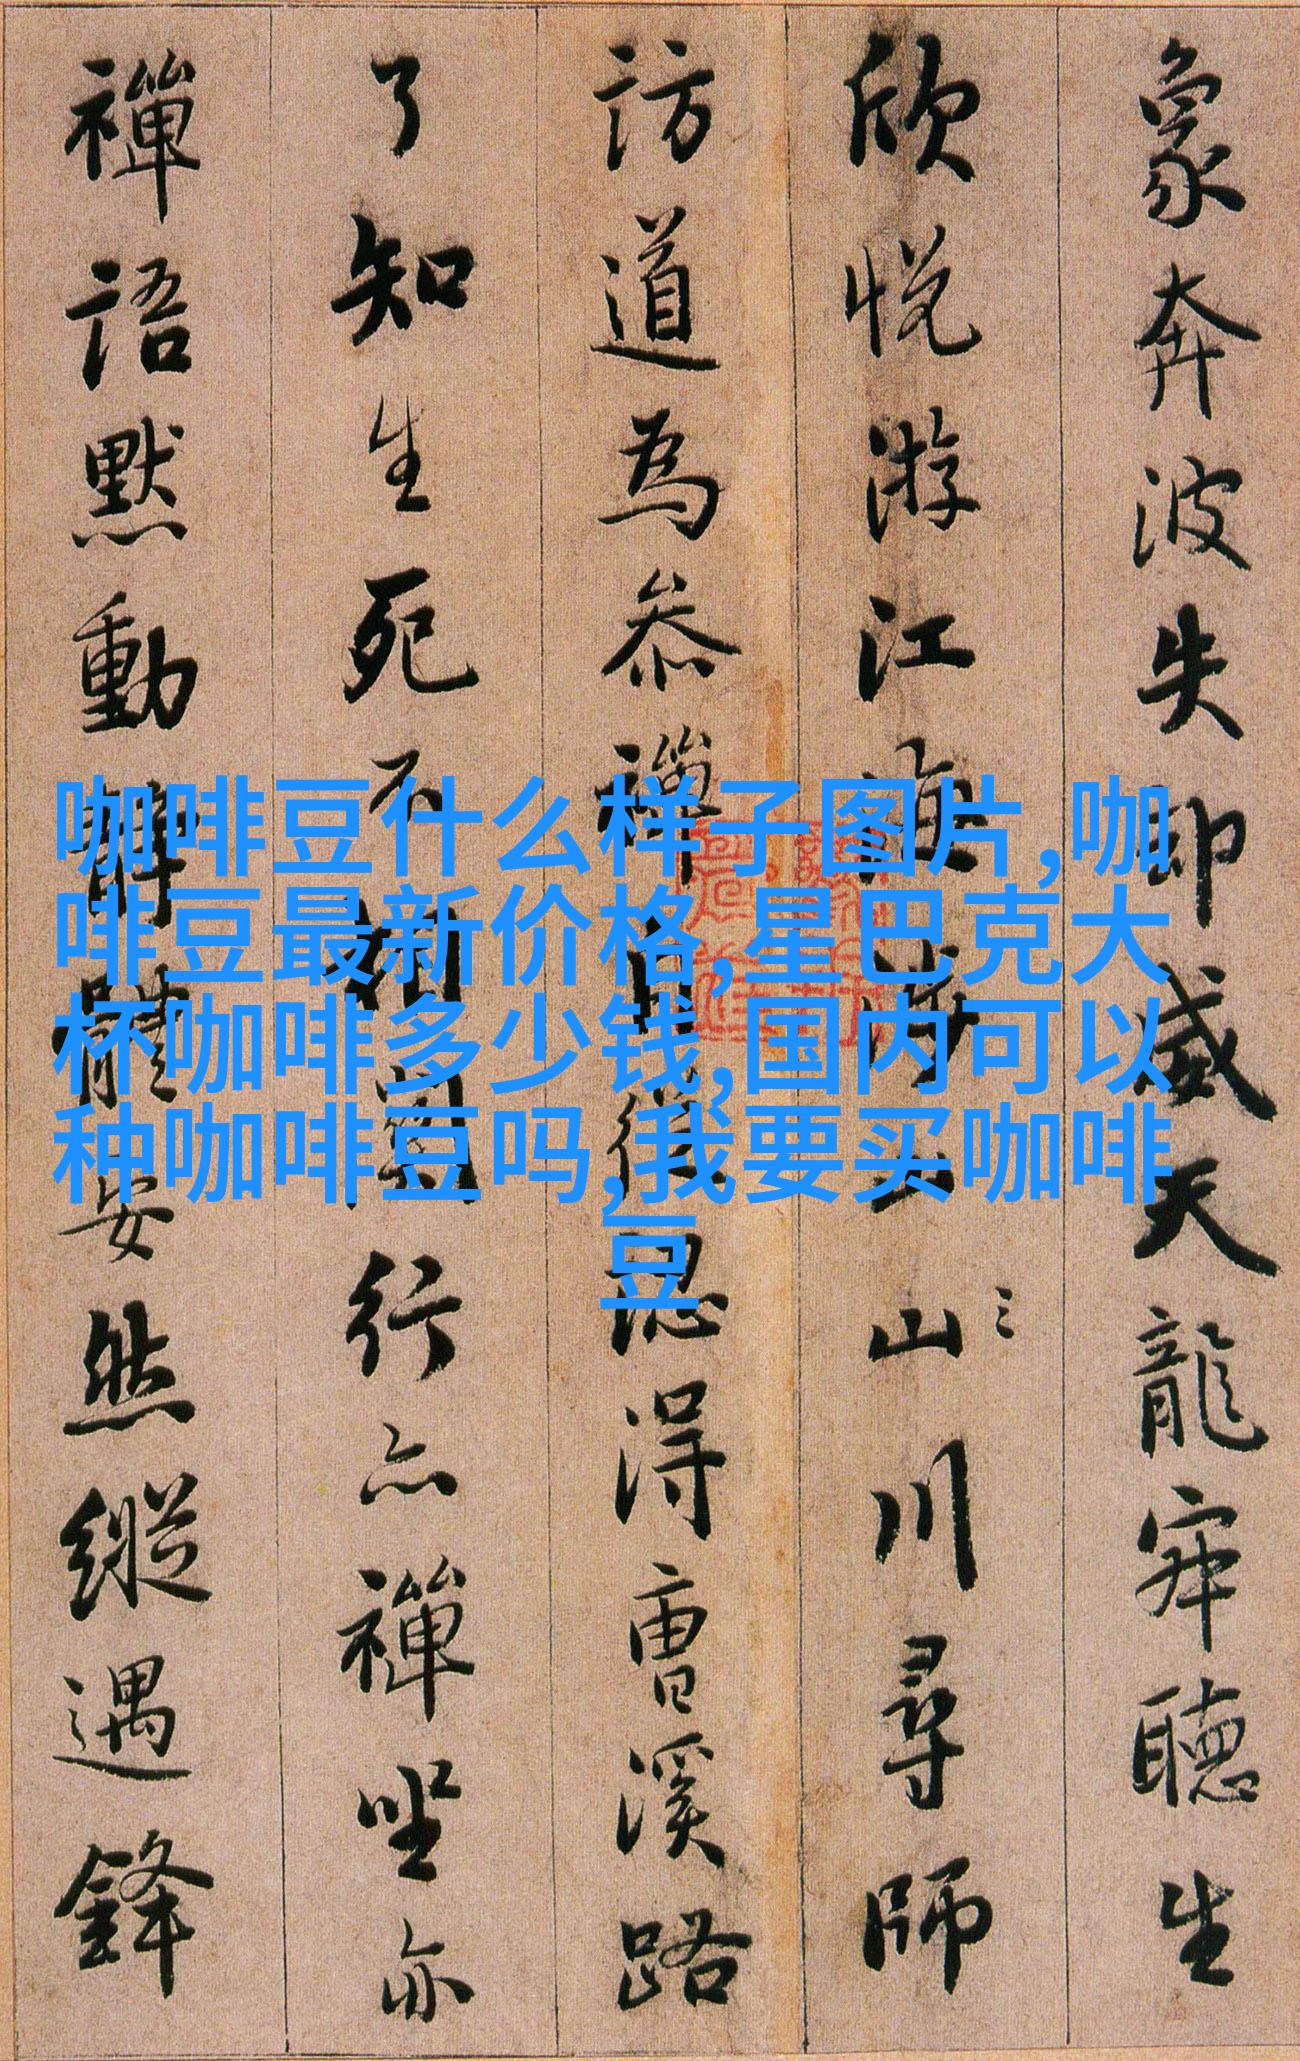 象奔波失却威天龍寂聽生
欣悅游江海涉山川尋師
訪道為叅禪自從認得曹溪路
了知生死不相關行亦禪坐亦
禪語默動靜體安然縱遇鋒
咖啡豆什么样子图片,咖
啡豆最新价格,星巴克大
杯咖啡多少钱,国内可以
种咖啡豆吗,我要买咖啡
豆